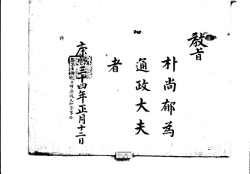 教旨
朴尚郁為
通政大夫
者
康熙三十四年正月十二日